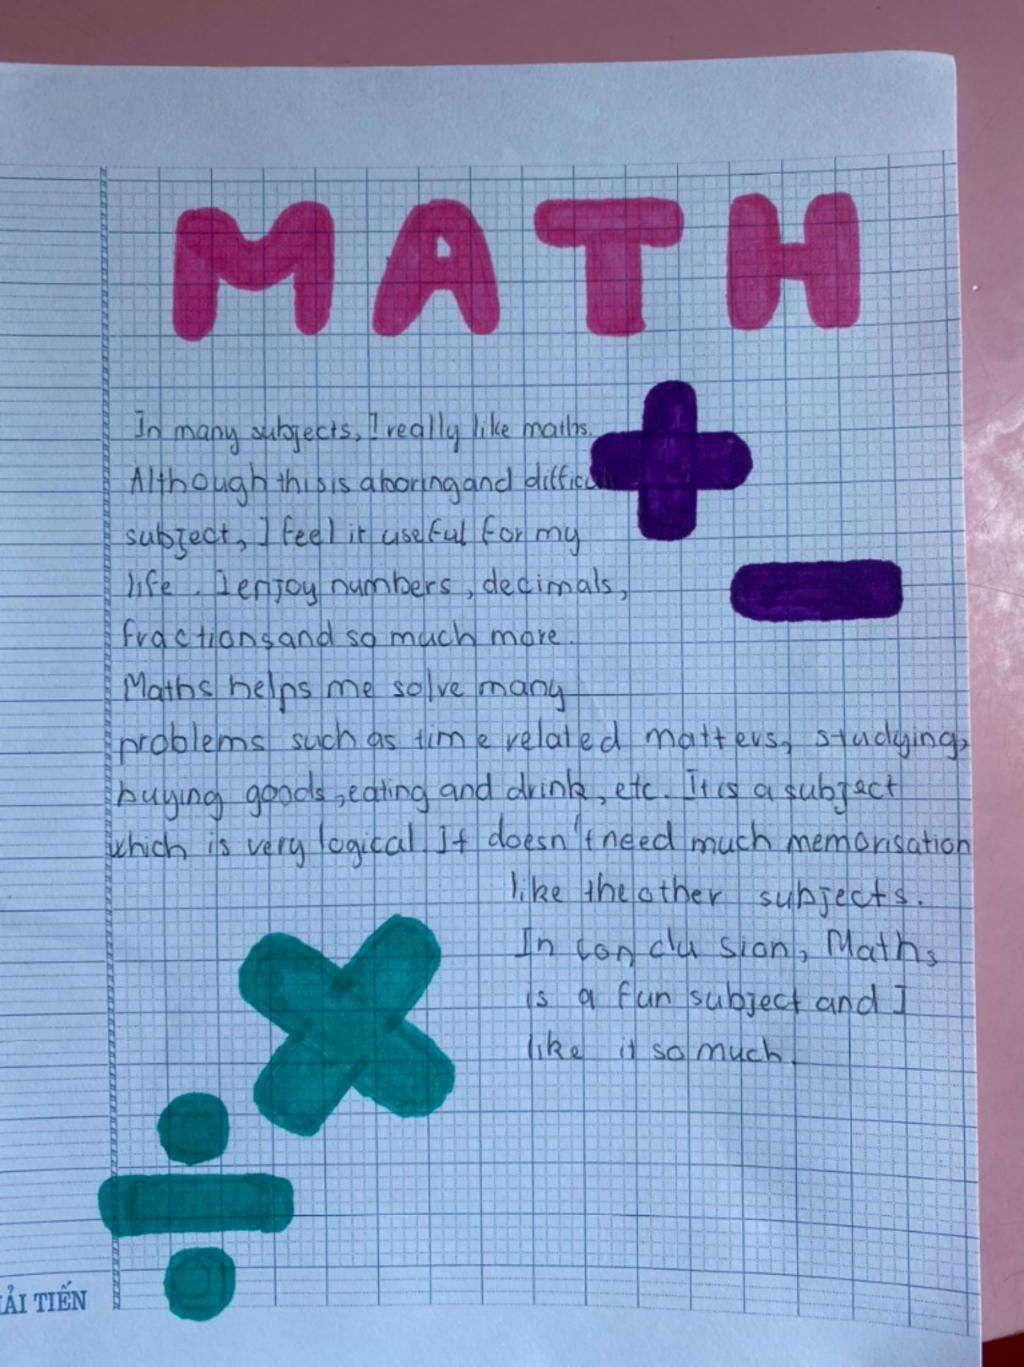 MATH
In many subjects, I really like maths.
Although this is a boring and difficult
subject, I feel it useful for my
life. I enjoy numbers, decimals,
fractions and so much more.
Maths helps me solve many
problems such as time related matters, studying,
buying goods, eating and drink, etc. It is a subject
which is very logical. It doesn't need much memorisation
like the other subjects.
In conclusion, Maths
is a fun subject and I
like it so much.
ẢI TIẾN